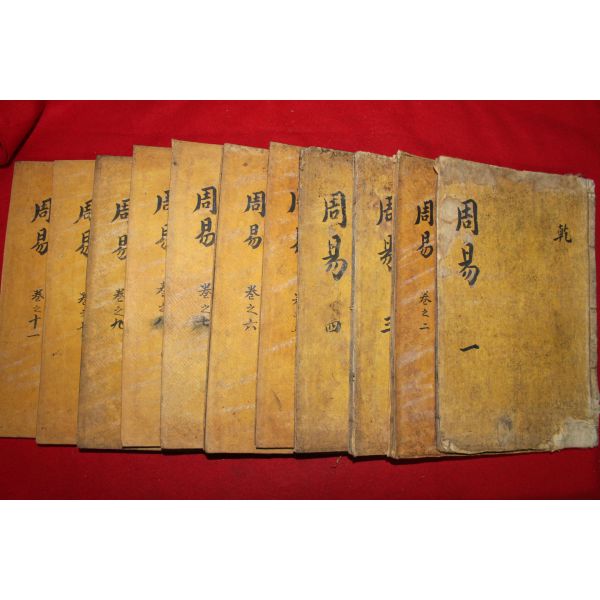 乾
周易 一
周易 卷之二
周易 三
周易 四
周易
周易 卷之六
周易 卷之七
周易
周易 卷之九
周易 卷之十
周易 卷之十一